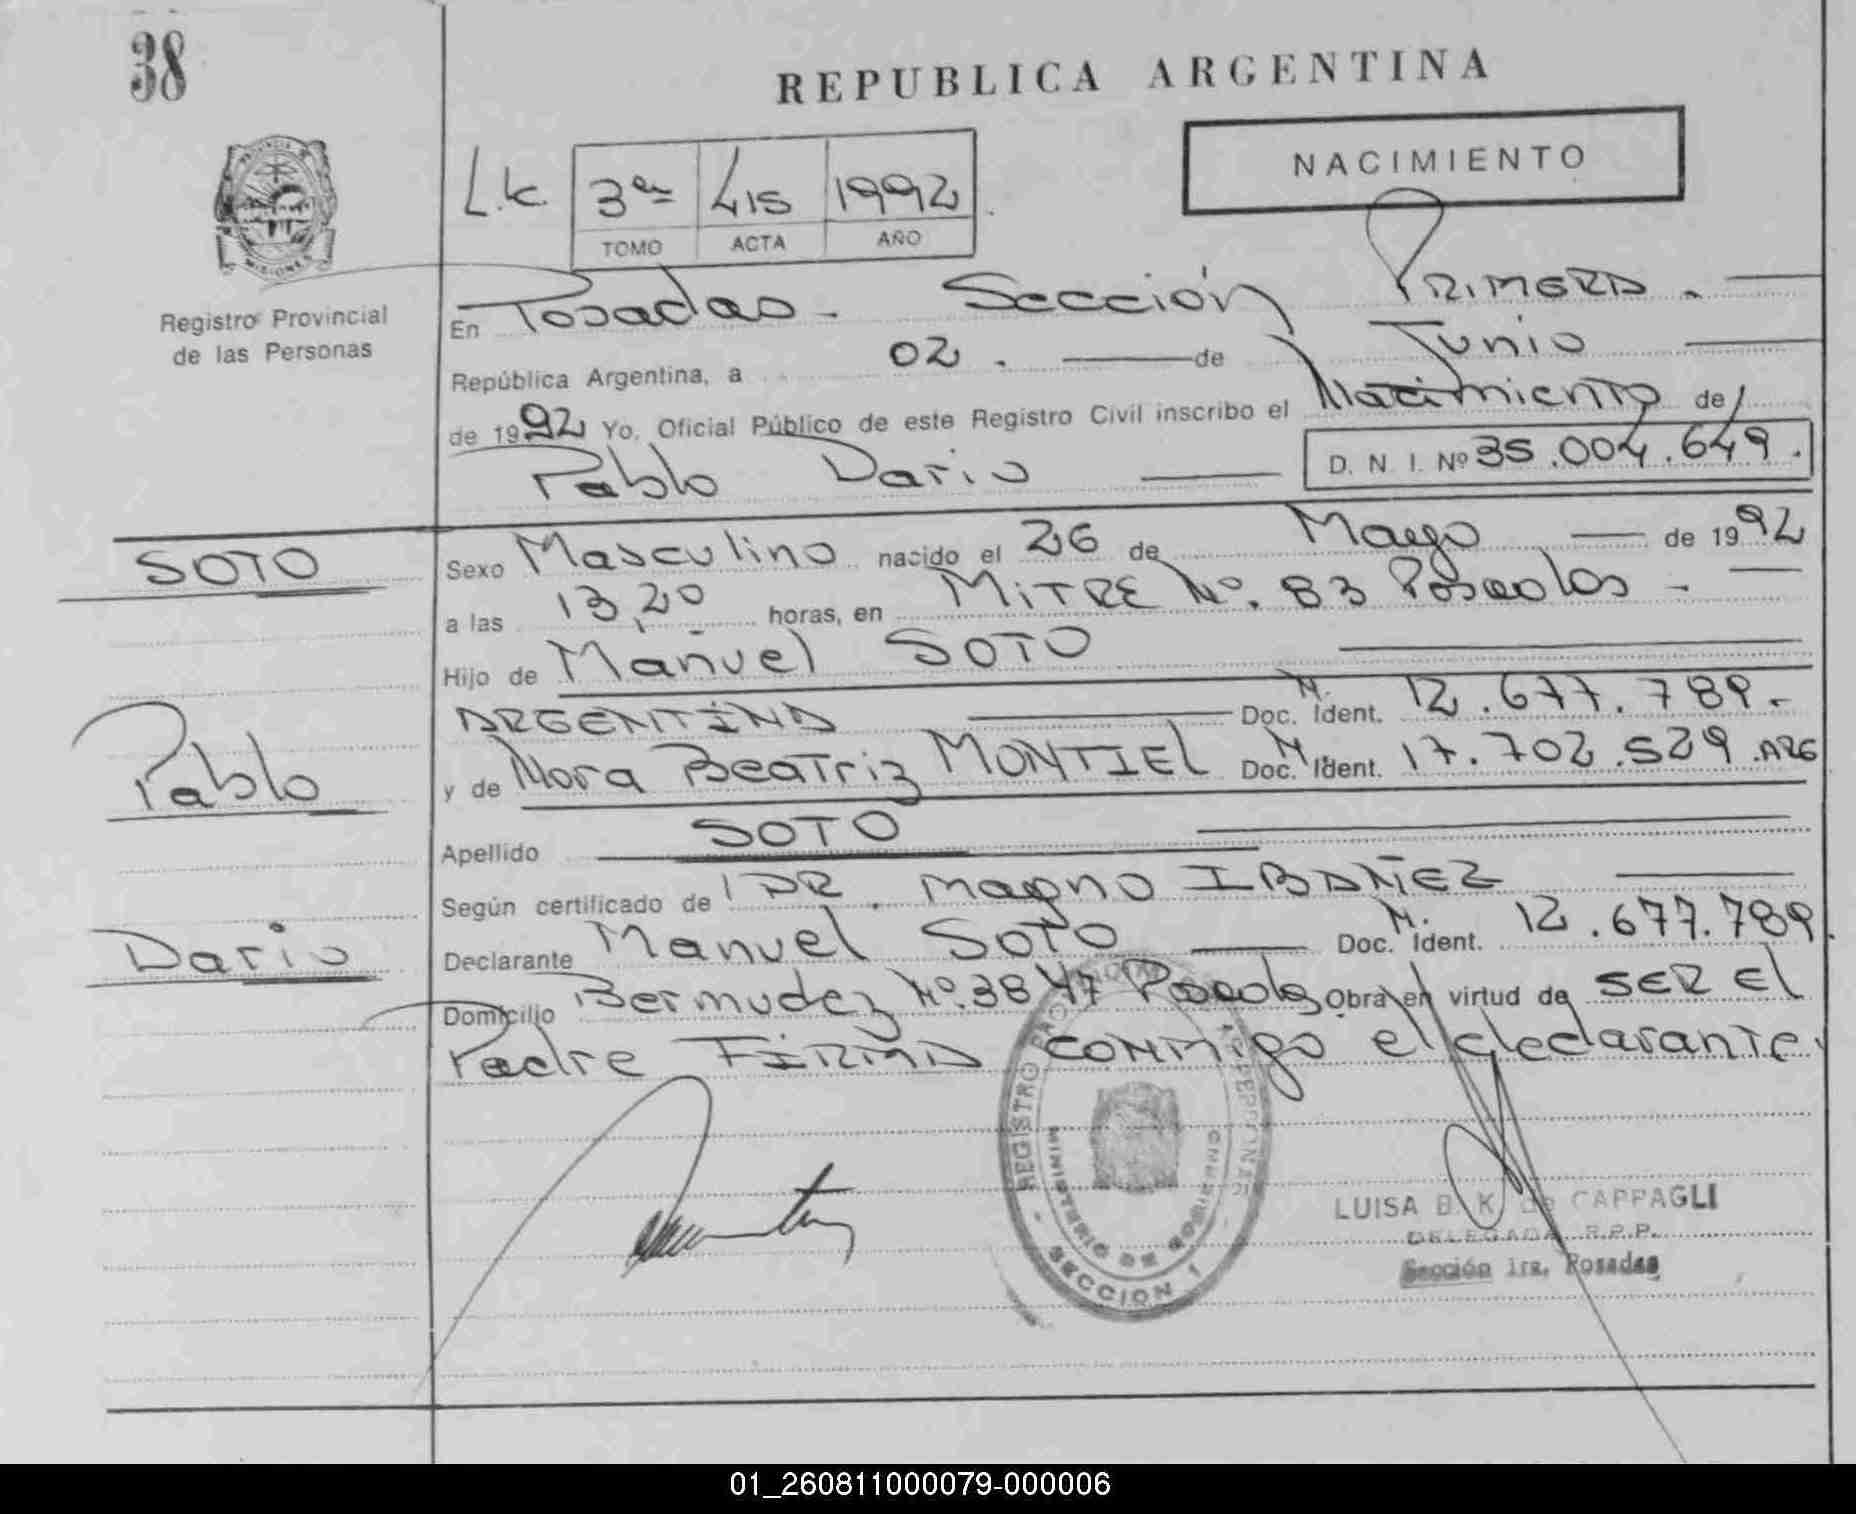 38
REPUBLICA ARGENTINA
NACIMIENTO
L.K. 3ra 415 1992
TOMO ACTA AÑO
PROVINCIA DE
MISIONES
Registro Provincial
de las Personas
En Posadas. Sección PRIMERA.
República Argentina, a 02. de Junio
de 1992 Yo, Oficial Público de este Registro Civil inscribo el Nacimiento de
Pablo Dario D. N. I. Nº 35.004.649.
SOTO
Sexo Masculino nacido el 26 de Mayo de 1992
a las 13,20 horas, en MITRE Nº. 83 Posadas -
Hijo de Manuel SOTO
ARGENTINA Doc. M. Ident. 12.677.789.-
y de Nora Beatriz MONTIEL Doc. M. Ident. 17.702.529.ARG
Pablo
Apellido SOTO
Según certificado de DR. Magno IBAÑEZ
Dario
Declarante Manuel SOTO Doc. M. Ident. 12.677.789.
Domicilio Bermudez Nº.3847 Posadas Obra en virtud de SER El
Padre FIRMA CONMIgo el declarante.
REGISTRO PROVINCIAL DE LAS PERSONAS
MINISTERIO DE GOBIERNO
- SECCION 1 -
LUISA B. K. de CAPPAGLI
DELEGADA R.P.P.
Sección 1ra. Posadas
01_260811000079-000006